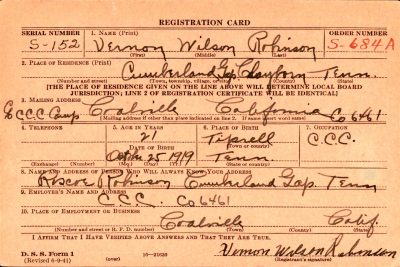 REGISTRATION CARD
SERIAL NUMBER 1. NAME (Print) ORDER NUMBER
S-152 Vernon Wilson Robinson S-684A
(First) (Middle) (Last)
2. PLACE OF RESIDENCE (Print)
Cumberland Gap, Tenn.
(Number and street) (Town, township, village, or city) (County) (State)
[THE PLACE OF RESIDENCE GIVEN ON THE LINE ABOVE WILL DETERMINE LOCAL BOARD
JURISDICTION; LINE 2 OF REGISTRATION CERTIFICATE WILL BE IDENTICAL]
3. MAILING ADDRESS
C.C.C. Camp Coalville California Co 6461
[Mailing address if other than place indicated on line 2. If same insert word same]
4. TELEPHONE 5. AGE IN YEARS 6. PLACE OF BIRTH 7. OCCUPATION
21 Tiprell C.C.C.
DATE OF BIRTH (Town or county)
25 1919 Tenn.
(Exchange) (Number) (Mo.) (Day) (Yr.) (State or country)
8. NAME AND ADDRESS OF PERSON WHO WILL ALWAYS KNOW YOUR ADDRESS
Roscoe Robinson Cumberland Gap, Tenn
9. EMPLOYER'S NAME AND ADDRESS
C.C.C. Co 6461
10. PLACE OF EMPLOYMENT OR BUSINESS
Coalville Calif.
(Number and street or R. F. D. number) (Town) (County) (State)
I AFFIRM THAT I HAVE VERIFIED ABOVE ANSWERS AND THAT THEY ARE TRUE.
D. S. S. Form 1
(Revised 6-9-41) (over) 16—21630 Vernon Wilson Robinson
(Registrant's signature)